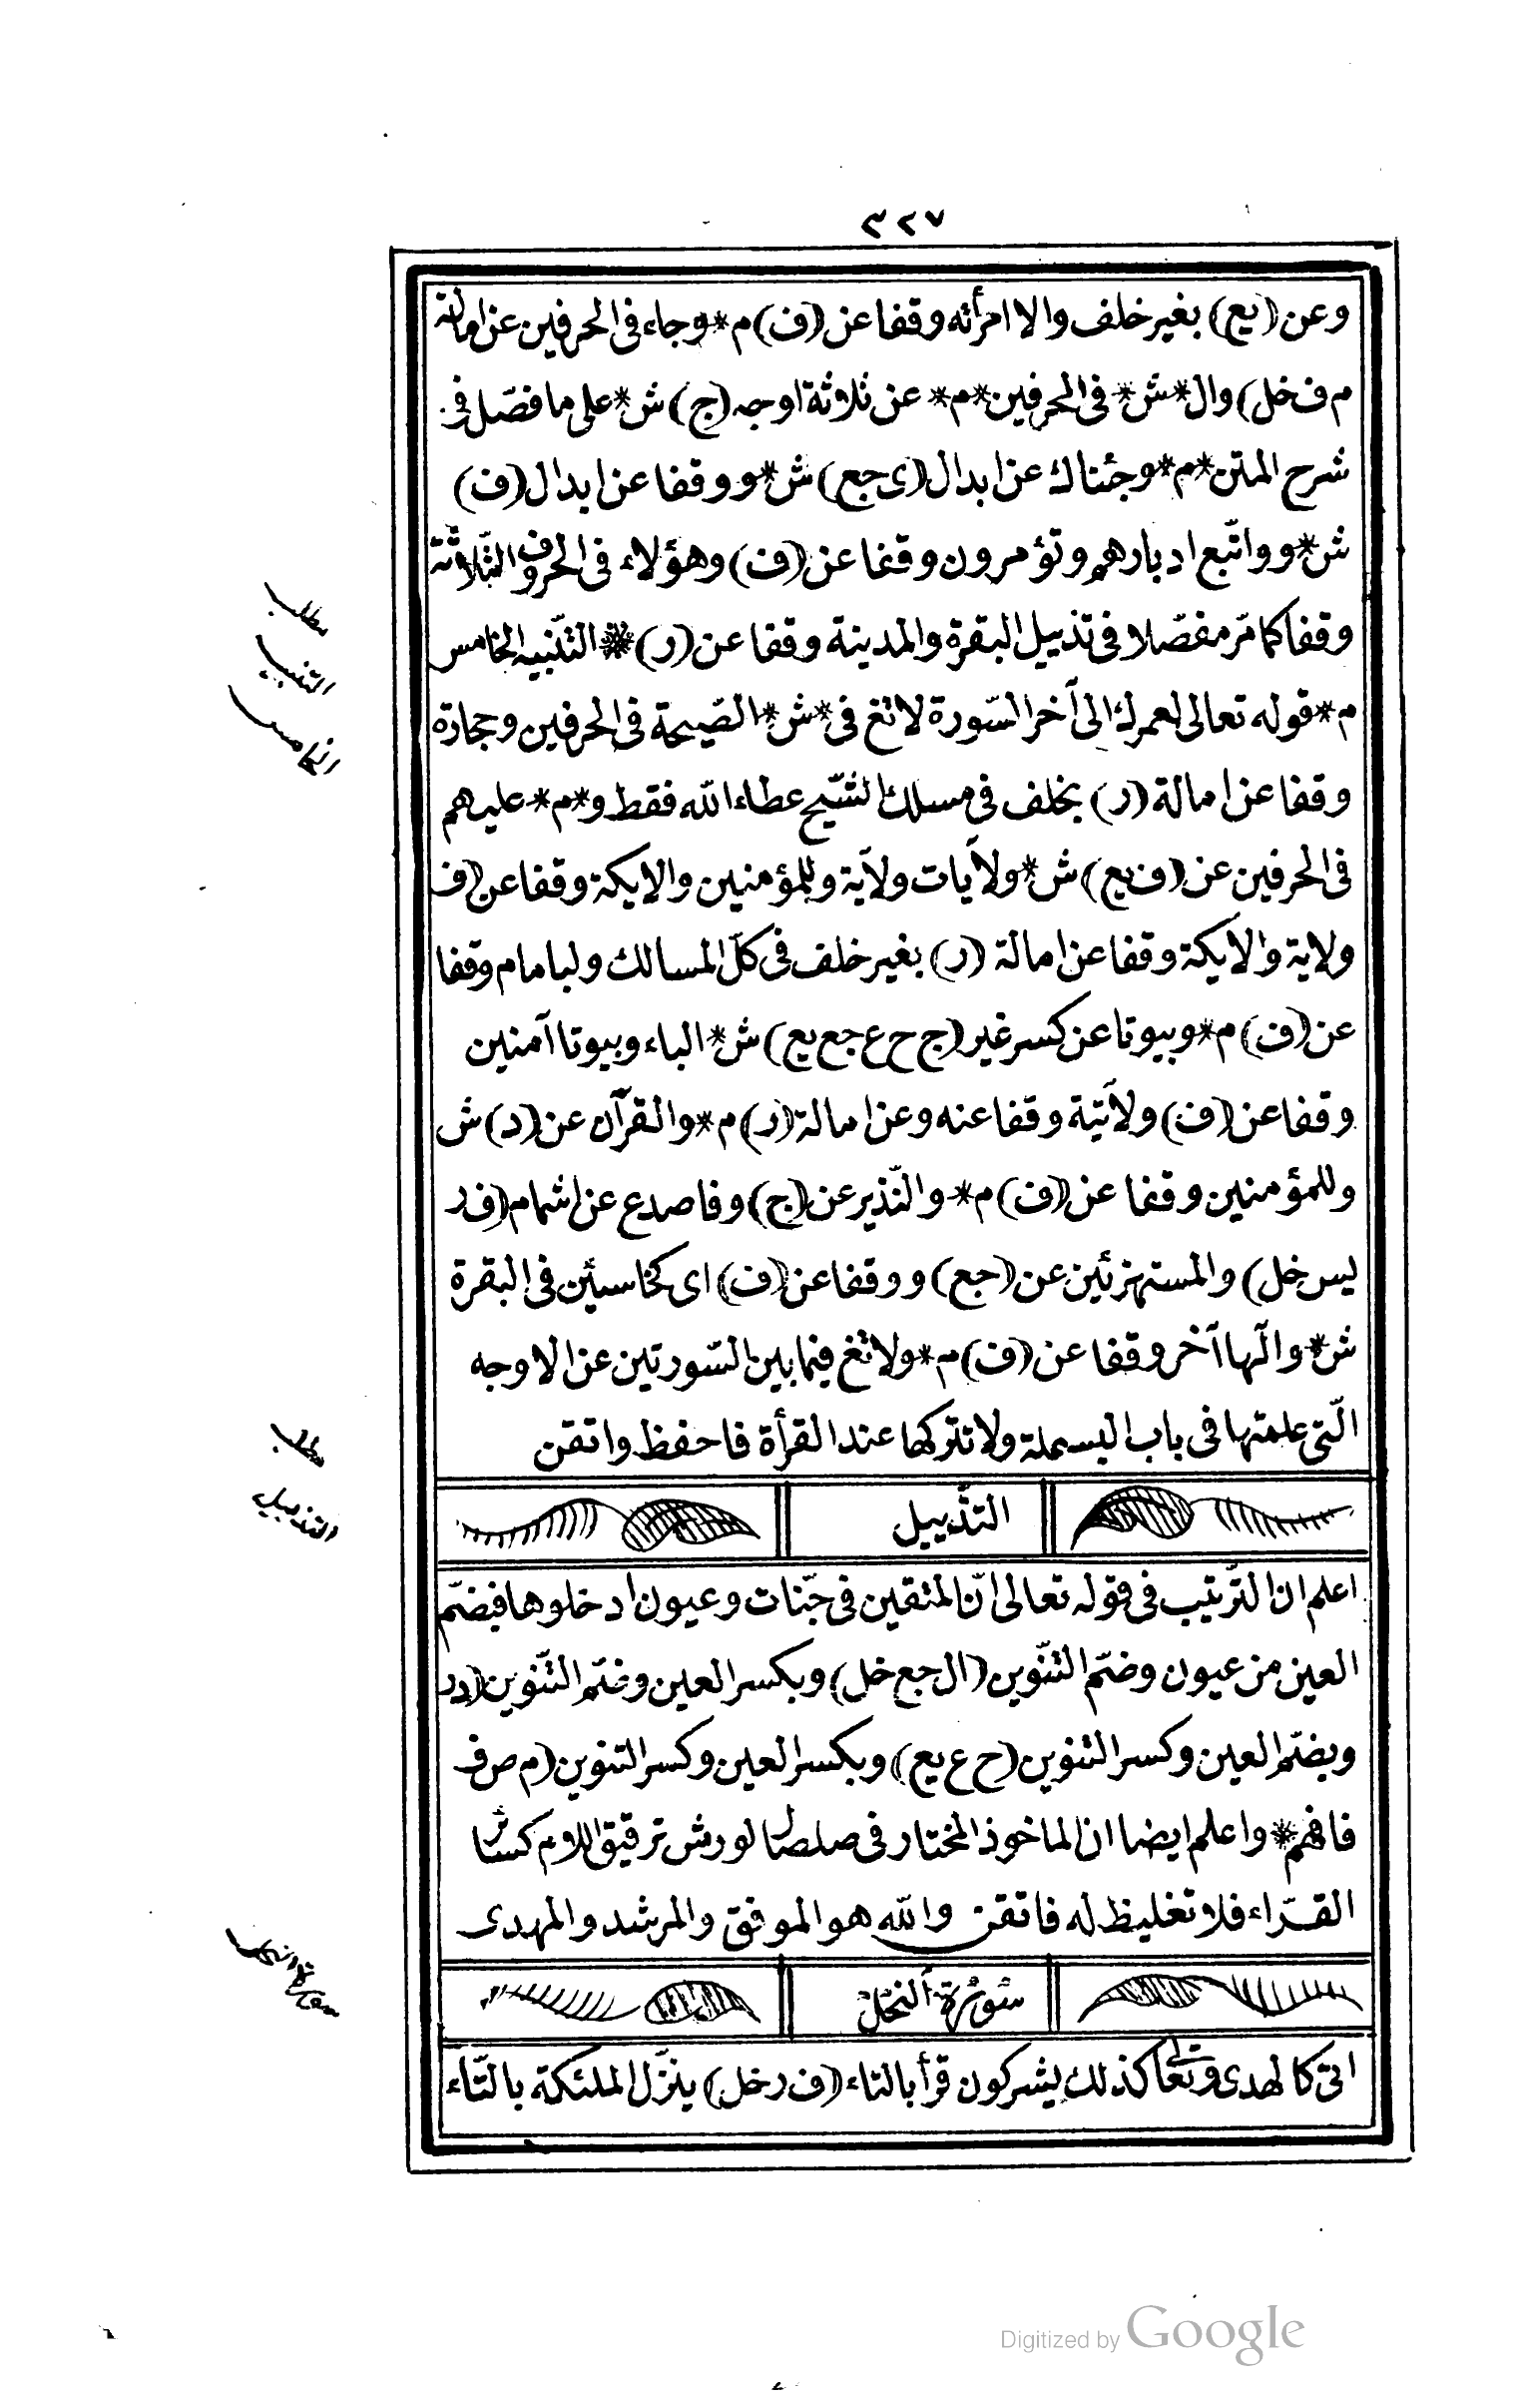 ٣٢٧
وعن (يع) بغير خلف والا امرأته وقفا عن (ف) م * وجاء فى الحرفين عن امالة
م ف خل) وال * ش * فى الحرفين * م * عن ثلاثة اوجه (ج) ش * على ما فصّل فى
شرح المتن * م * وجئناك عن ابدال (ى جع) ش * ووقفا عن ابدال (ف)
ش * وواتّبع ادبارهم وتؤمرون وقفا عن (ف) وهؤلاء فى الحروف الثّلاثة
وقفا كما مرّ مفصّلا فى تذييل البقرة والمدينة وقفا عن (ر) * التّنبيه الخامس
م * قوله تعالى لعمرك الى آخر السّورة لا تغ فى * ش * الصّيحة فى الحرفين وحجارة
وقفا عن امالة (ر) بخلف فى مسلك الشّيخ عطاء الله فقط و * م * عليهم
فى الحرفين عن (ف يع) ش * ولآيات ولآية وللمؤمنين والايكة وقفا عن (ف
ولاية والايكة وقفا عن امالة (ر) بغير خلف فى كلّ المسالك ولبامام وقفا
عن (ف) م * وبيوتا عن كسر غير (ج ح ع جع يع) ش * الباء وبيوتا آمنين
وقفا عن (ف) ولآتية وقفا عنه وعن امالة (ر) م * والقرآن عن (د) ش
وللمؤمنين وقفا عن (ف) م * والنّذير عن (ج) وفاصدع عن اشمام (ف ر
يس خل) والمستهزئين عن (جع) ووقفا عن (ف) اى كخاسئين فى البقرة
ش * والٓها آخر وقفا عن (ف) م * ولا تغ فيما بين السّورتين عن الاوجه
الّتى علمتها فى باب البسملة ولا تتركها عند القرأة فاحفظ واتقن
التّذييل
اعلم ان التّرتيب فى قوله تعالى انّ المتقين فى جنّات وعيون ادخلوها فبضمّ
العين من عيون وضمّ التّنوين (ال جع خل) وبكسر العين وضمّ التّنوين (د ر
وبضمّ العين وكسر التنوين (ح ع يع) وبكسر العين وكسر التنوين (م ص ف
فافهم * واعلم ايضا ان الماخوذ المختار فى صلصال لورش ترقيق اللام كسائر
القرّاء فلا تغليظ له فاتقن والله هو الموفق والمرشد والمهدى
سُورَة اَلنَحْل
اتى كالهدى وتعالى كذلك يشركون قرأ بالتاء (ف ر خل) ينزّل الملئكة بالتّاء
مطلب
التنبيه
الخامس
مطلب
التذييل
سورة النحل
Digitized by Google